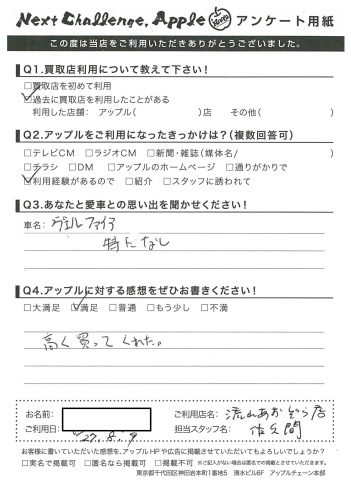 Next Challenge. Apple アンケート用紙
この度は当店をご利用いただきありがとうございました。
Q1.買取店利用について教えて下さい！
□買取店を初めて利用
☑過去に買取店を利用したことがある
利用した店舗：アップル（　　　　）店　その他（　　　　）
Q2.アップルをご利用になったきっかけは？（複数回答可）
□テレビCM □ラジオCM □新聞・雑誌（媒体名/　　　　）
□チラシ □DM □アップルのホームページ □通りがかりで
☑利用経験があるので □紹介 □スタッフに誘われて
Q3.あなたと愛車との思い出を聞かせください！
車名：ヴェルファイア
特になし
Q4.アップルに対する感想をぜひお書きください！
□大満足 ☑満足 □普通 □もう少し □不満
高く買ってくれた。
お名前： ご利用店名：流山あおぞら店
ご利用日：27.8.9 担当スタッフ名：佐久間
お客様に書いていただいた感想を、アップルHPや広告に掲載させていただいてもよろしいでしょうか？
□実名で掲載可 □匿名なら掲載可 □掲載不可 ※ご記入がない場合は匿名での掲載とさせていただきます。
東京都千代田区神田岩本町1番地5 清水ビル6F アップルチェーン本部